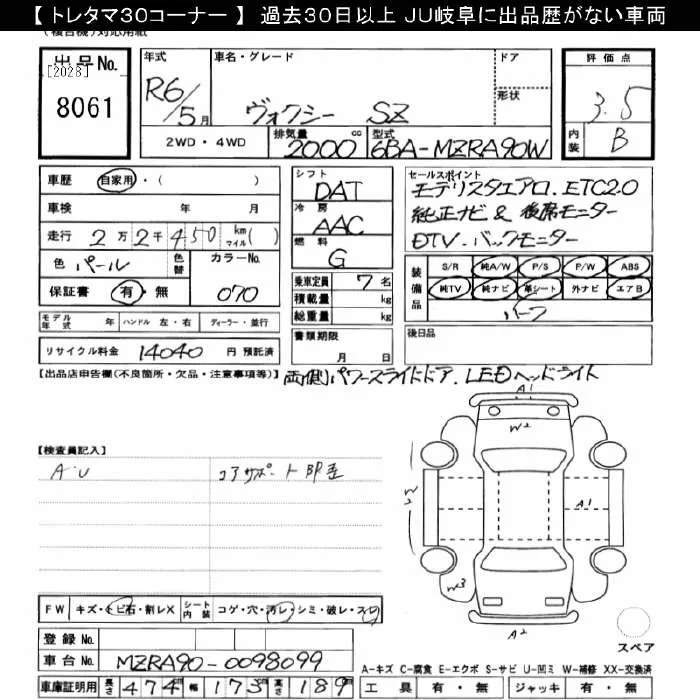 【 トレタマ30コーナー 】 過去30日以上 JU岐阜に出品歴がない車両
出品No.
[2028]
8061
年式
R6/5月
車名・グレード
ヴォクシー SZ
ドア
形状
評価点
3.5
内装
B
2WD・4WD
排気量
2000 cc
型式
6BA-MZRA90W
車歴 自家用・( )
車検 年 月
走行 2万2千450 km マイル( )
色 パール 色替
カラーNo. 070
保証書 有・無
シフト DAT
冷房 AAC
燃料 G
乗車定員 7名
積載量 kg
総重量 kg
セールスポイント
モデリスタエアロ.ETC2.0
純正ナビ & 後席モニター
DTV.バックモニター
装備品
S/R 純A/W P/S P/W ABS
純TV 純ナビ 革シート 外ナビ エアB
モデル年式 年 ハンドル 左・右 ディーラー・並行
書類期限 月 日
後日品
リサイクル料金 14040 円 預託済
【出品店申告欄(不良箇所・欠品・注意事項等)】 両側パワースライドドア.LEDヘッドライト
【検査員記入】
A・U コアサポート部歪
A1
W2
W2
A1
W3
A2
スペア
FW キズ・トビ石・割レX シート内装 コゲ・穴・汚レ・シミ・破レ・スレ
登録No.
車台No. MZRA90-0098099
A-キズ C-腐食 E-エクボ S-サビ U-凹ミ W-補修 XX-交換済
車庫証明用 長さ 474 幅 173 高さ 189
工具 有・無 ジャッキ 有・無